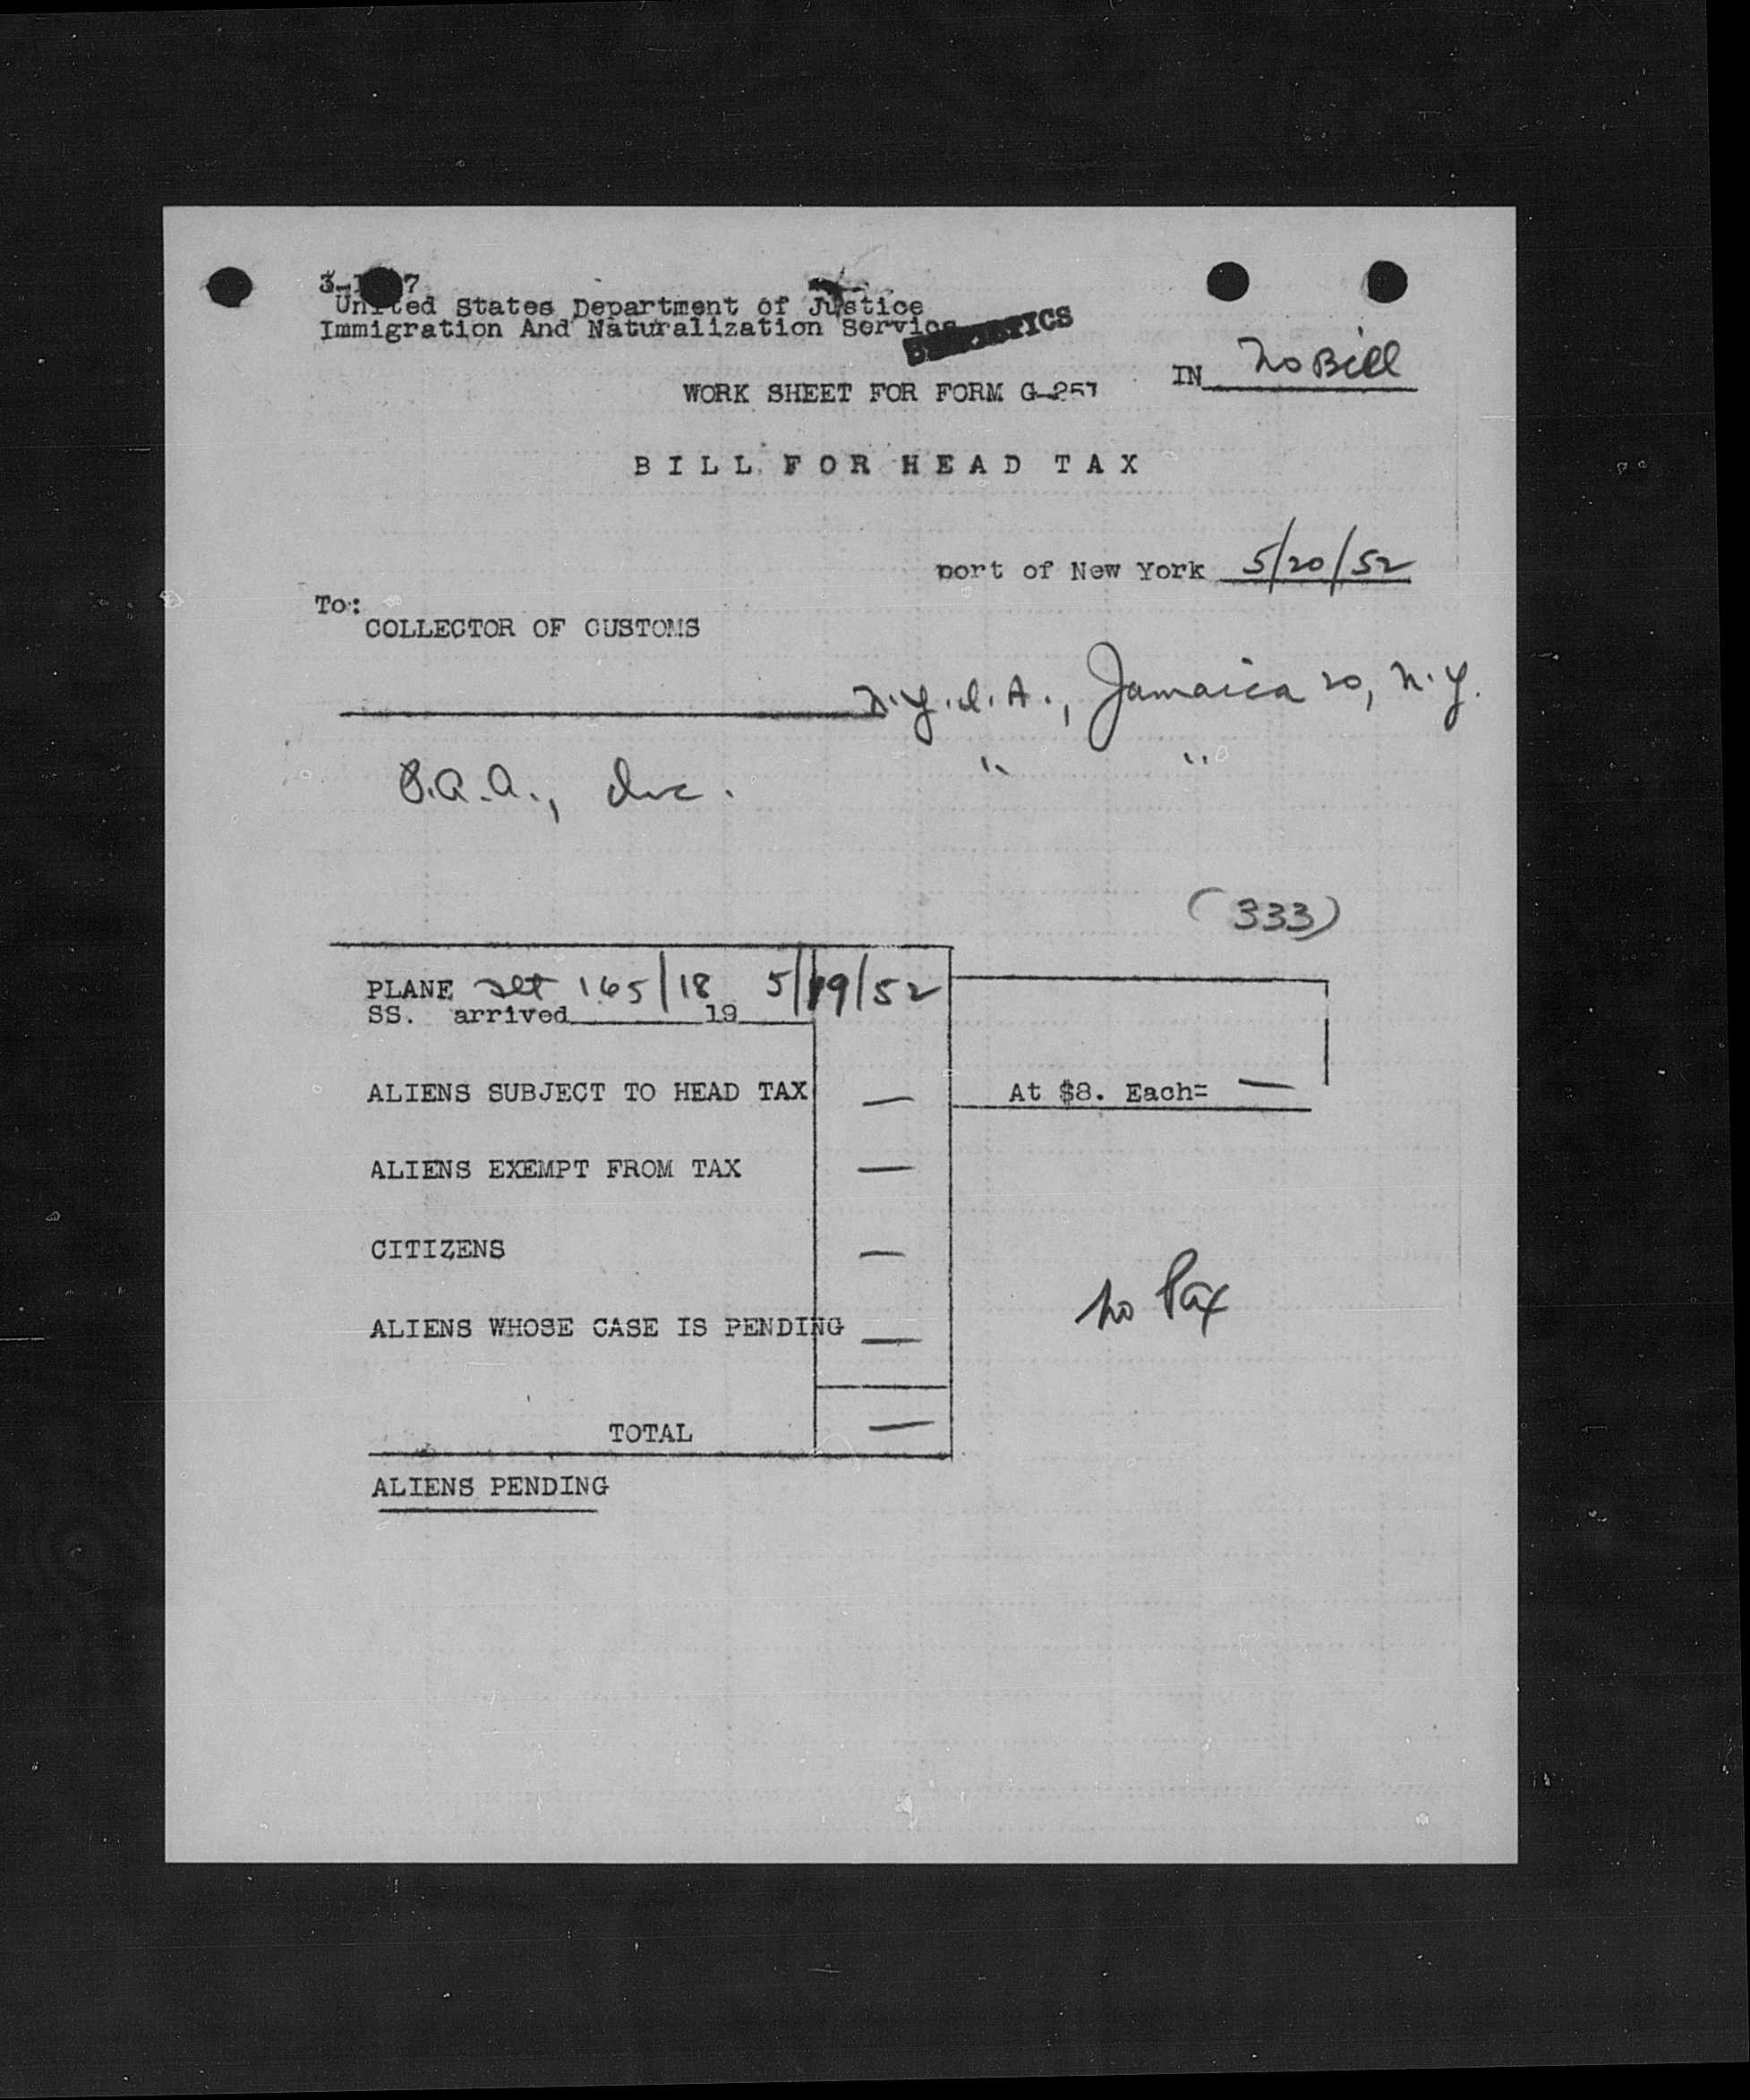 United States Department of Justice
Immigration And Naturalization Service
IN No Bill
WORK SHEET FOR FORM G-257
BILL FOR HEAD TAX
port of New York 5/20/52
To:
COLLECTOR OF CUSTOMS
N.Y.I.A., Jamaica 20, N.Y.
" "
Inc.
(333)
PLANE flt 165/18 5/19/52
SS. arrived 19
ALIENS SUBJECT TO HEAD TAX — At $8. Each= —
ALIENS EXEMPT FROM TAX —
CITIZENS —
No Pax
ALIENS WHOSE CASE IS PENDING —
TOTAL —
ALIENS PENDING